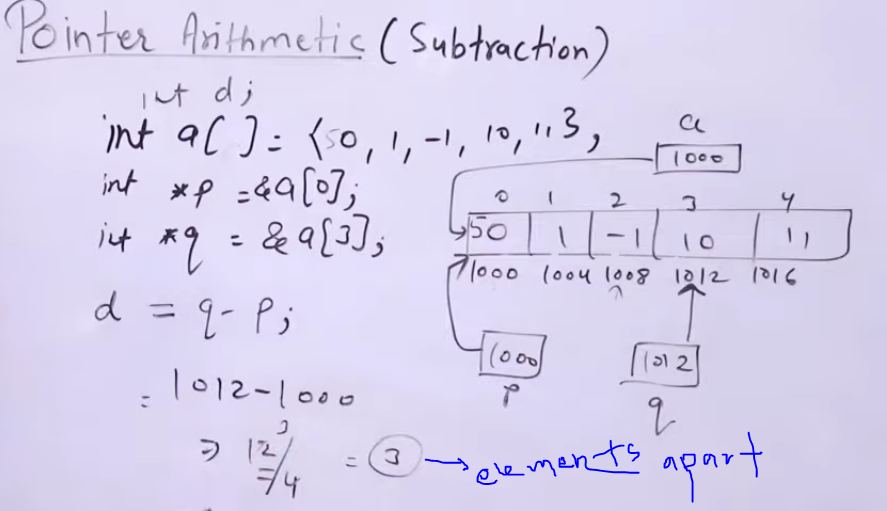 Pointer Arithmetic (Subtraction)
int d;
int a[ ] = {50, 1, -1, 10, 11},
int *p = &a[0];
int *q = &a[3];
d = q - p;
= 1012 - 1000
⇒ 12/4 = 3 → elements apart
3
a
1000
0 1 2 3 4
50 1 -1 10 11
1000 1004 1008 1012 1016
1000
p
1012
q